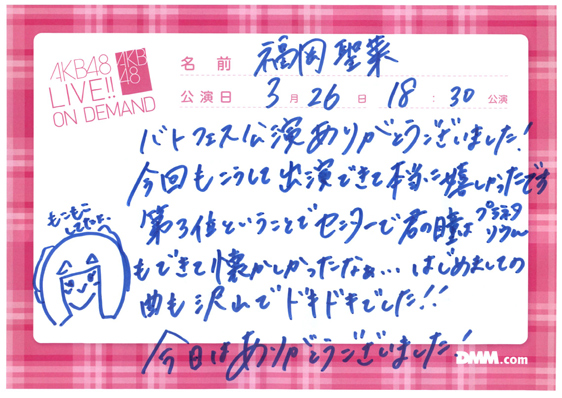 AKB48
LIVE!!
ON DEMAND
AKB
48
名前 福岡聖菜
公演日 3月26日 18:30公演
バトフェス公演ありがとうございました!
今回もこうして出演できて本当に嬉しかったです
第3位ということでセンターで君の瞳はプラネタリウム
もできて懐かしかったなぁ… はじめましての
曲も沢山でドキドキでした!!
今日はありがとうございました!
もこもこ
DMM.com